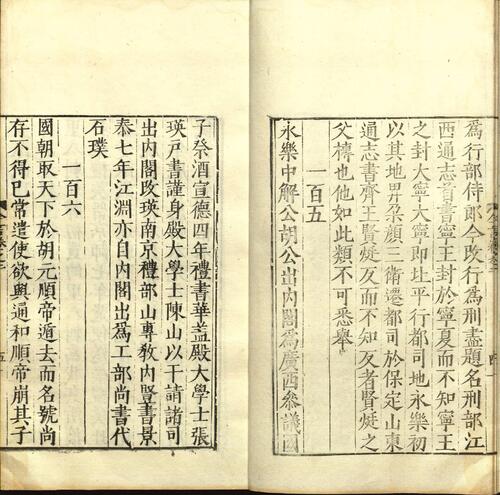 爲行部侍郎今改行爲刑盡題名刑部江
西通志首書寧王封於寧夏而不知寧王
之封大寧大寧即北平行都司地永樂初
以其地畀朶顏三衛遷都司於保定山東
通志書齊王賢烶反而不知反者賢烶之
父榑也他如此類不可悉舉
一百五
永樂中解公胡公出内閣爲廣西叅議國
子祭酒宣德四年禮書華盖殿大學士張
瑛戸書謹身殿大學士陳山以干請諸司
出内閣改瑛南京禮部山專敎内豎書景
泰七年江淵亦自内閣出爲工部尚書代
石璞
一百六
國朝取天下於胡元順帝遁去而名號尚
存不得已常遣使欲與通和順帝崩其子